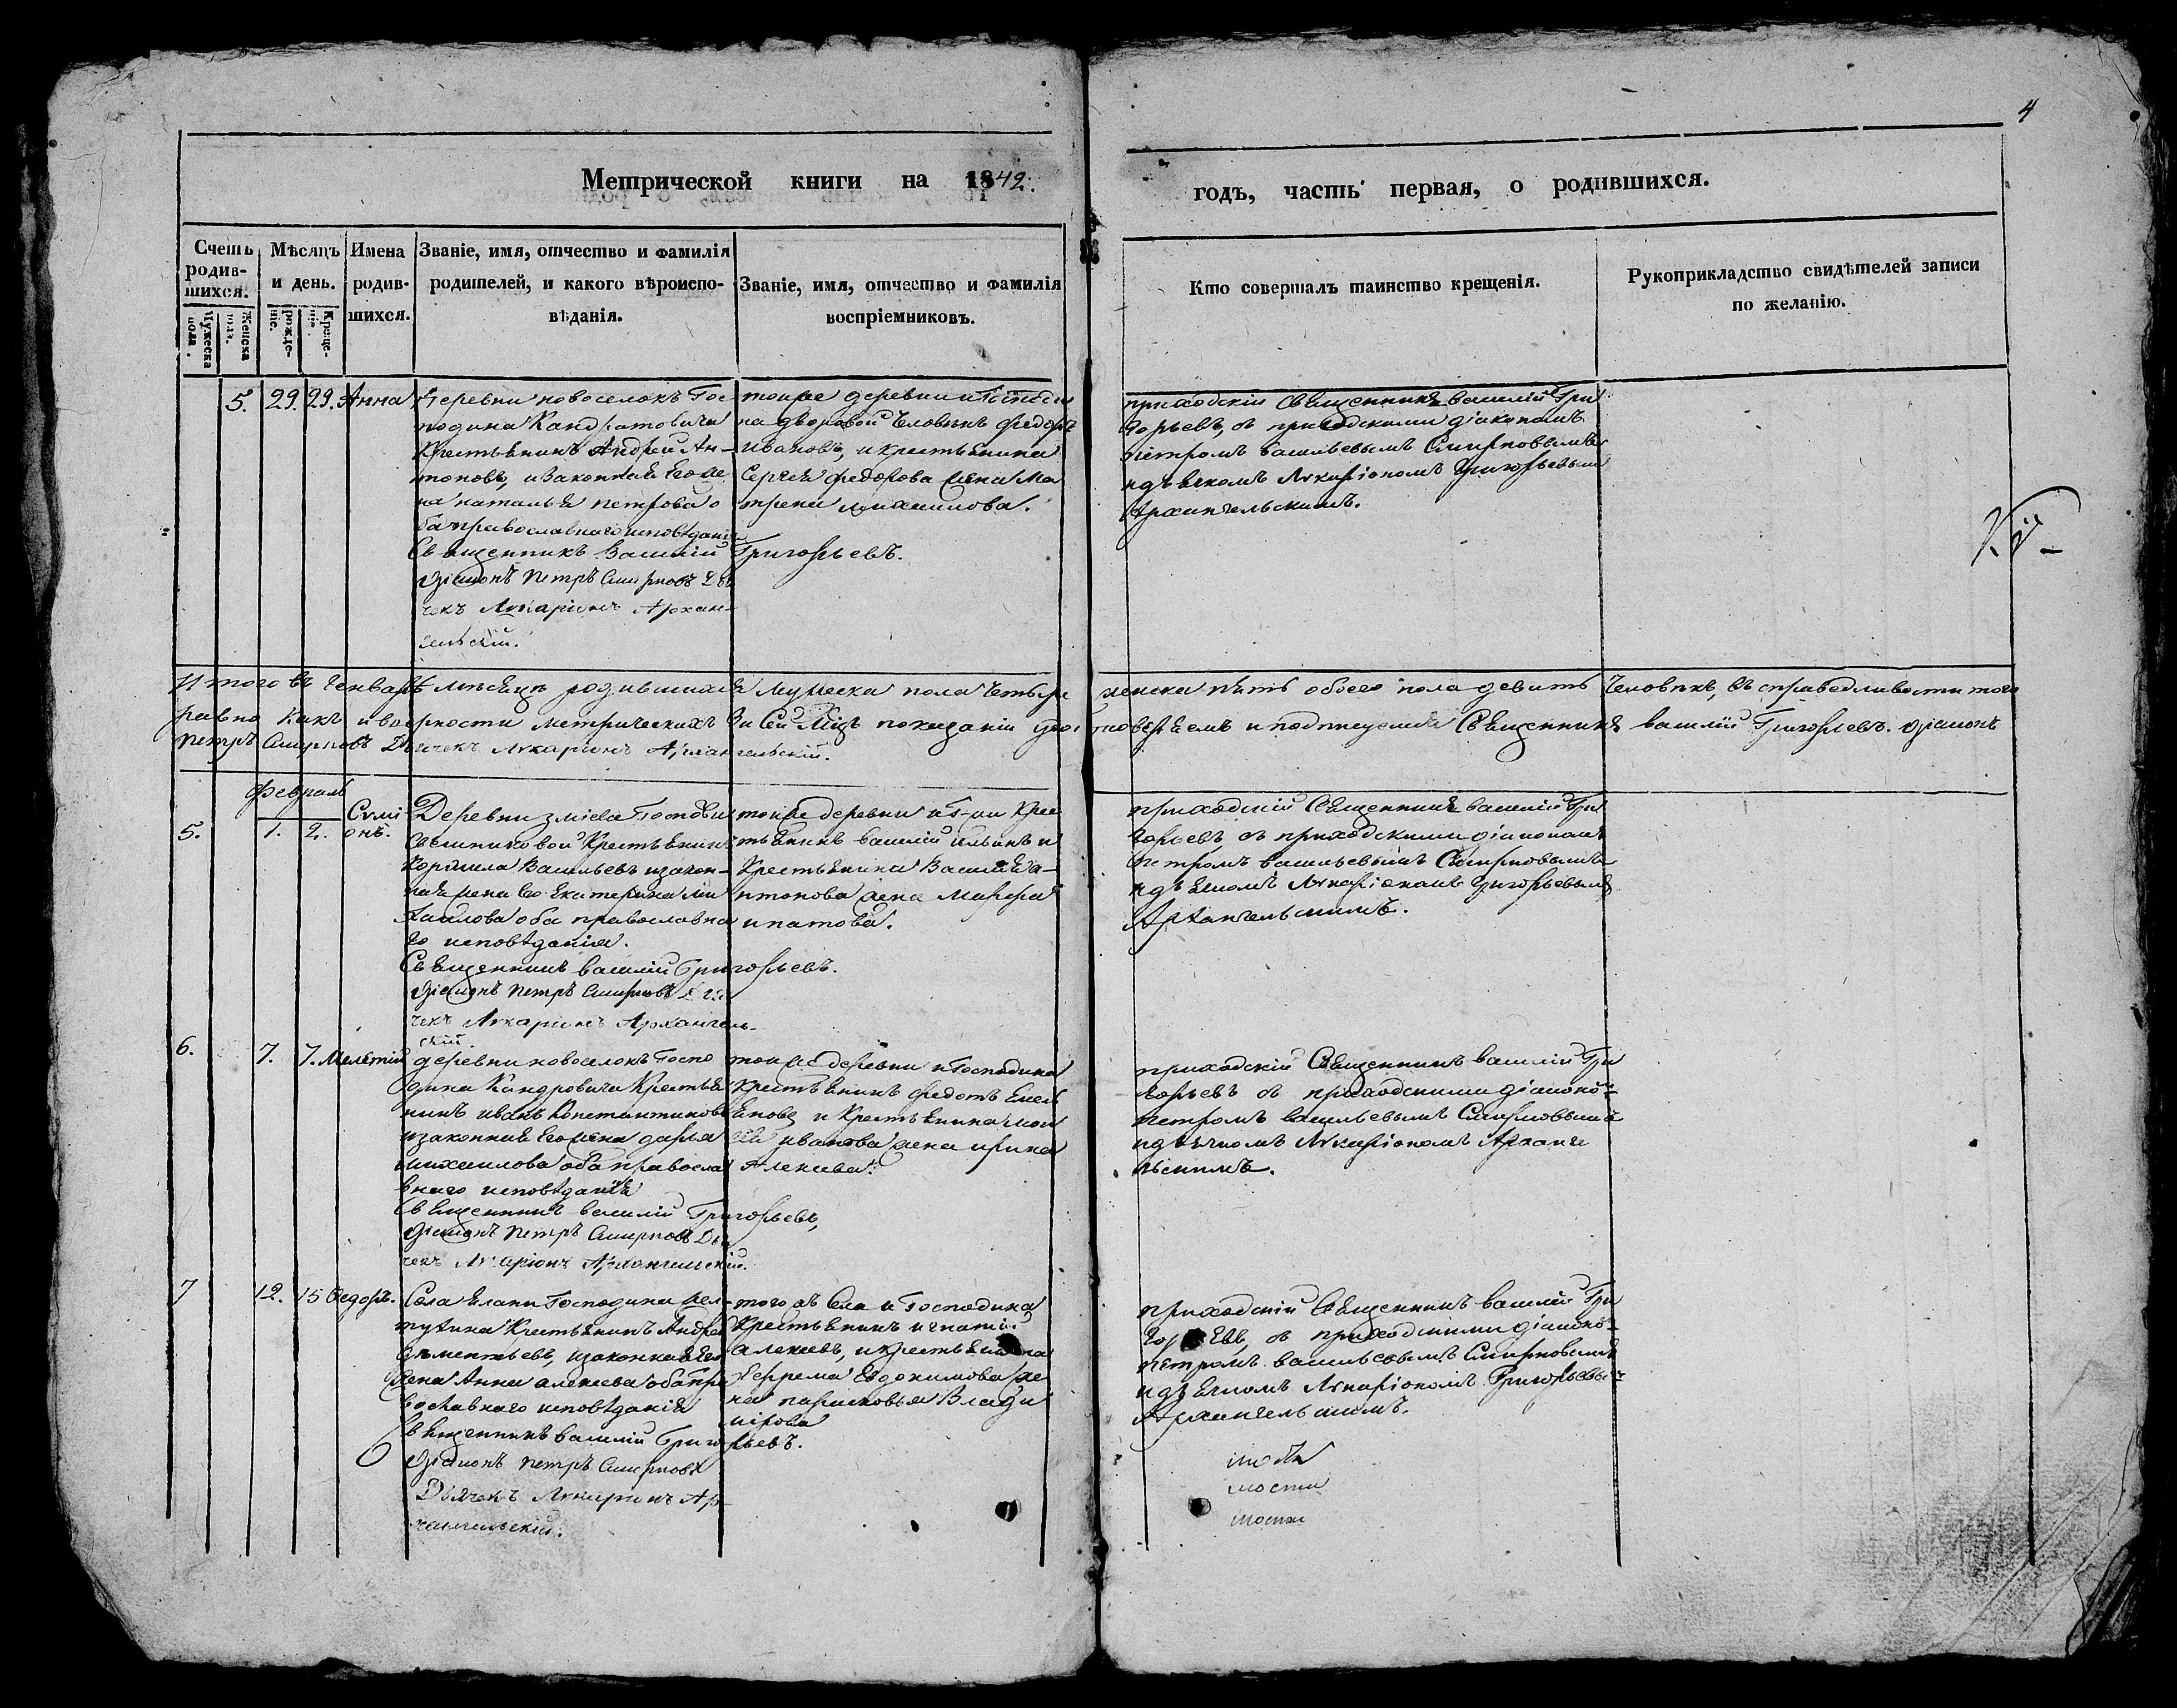 4
Метрической книги на 1842.
годъ, часть первая, о родившихся.
Счетъ родив-шихся.
Мужеска пола.
Женска пола.
Мѣсяцъ и день.
рожде-ніе.
Креще-ніе.
Имена родив-шихся.
Званіе, имя, отчество и фамилія
родителей, и какого вѣроиспо-
вѣданія.
Званіе, имя, отчество и фамилія
воспріемниковъ.
Кто совершалъ таинство крещенія.
Рукоприкладство свидѣтелей записи
по желанію.
5. 29. 29. Анна
Деревни новоселокъ Гос
подина Кандратовича
Крестьянинъ Андрей Ан-
тоновъ, и Законная Его же
на наталья петрова о
ба православнаго исповѣданія
Священникъ Василій Григорьевъ.
Діаконъ Петръ Смирновъ Дья
чекъ Лукаріонъ Архан-
гельскій.
тойже деревни и Господи
на дворовой Человѣкъ Федоръ
Ивановъ, и крестьянина
Сергея федорова жена Ма
трена михаилова.
приходскій Священникъ василій Гри
горьевъ, съ приходскими діакономъ
петромъ васильевымъ Смирновымъ
и дьячкомъ Лукаріономъ Григорьевым
Архангельскимъ.
Итого въ Генварѣ мѣсяцѣ родившихся Мужеска пола Четыре женска пять обоего пола девять Человѣкъ, въ справедливости того
равно какъ и верности метрическихъ За Сей Мцъ показаній удостоверяемъ и подписуемся Священникъ василій Григорьевъ. діаконъ
петръ Смирновъ Дьячекъ Лукаріонъ Архангельскій.
Февраль
5. 1. 2. Сѵмі
онъ.
Деревни зміева Госпожи
Свешниковой Крестьянинъ
Корнила Васильевъ и закон-
ная жена Его Екатерина Ми
хаилова оба православна
го исповѣданія.
Священникъ василій Григорьевъ.
Діаконъ Петръ Смирновъ Дья
чекъ Лукаріонъ Архангель-
скій.
тойже деревни и Г-жи Крес
тьянинъ василій ильинъ и
Крестьянина Василья а-
нтонова жена Марфа
ипатова.
приходскій Священникъ василій Гри
горьевъ, съ приходскими діакономъ
Петромъ васильевымъ Смирновымъ
и дьячкомъ Лукаріономъ григорьевымъ
Архангельскимъ.
6. 7. 7. Мелетій
деревни новоселокъ Госпо
дина Кандровича Крестья
нинъ иванъ Константиновъ
и законная Его жена дарья
михаилова оба правосла
внаго исповѣданія
Священникъ василій Григорьевъ,
Діаконъ Петръ Смирновъ Дья
чекъ Лукаріонъ Архангельскій.
тойже деревни и Господина
Крестьянинъ федотъ Емель
яновъ и Крестьянина мои
сея иванова жена ирина
Алексева.
приходскій Священникъ василій Гри
горьевъ съ приходскими діаконо-
петромъ васильевымъ Смирновымъ
и дьячкомъ Лукаріономъ Арханге
льскимъ.
7 12. 15 Федоръ.
Села Елани Господина жел-
тухина Крестьянинъ Андрей
дементьевъ, и законная Его
жена Анна алексева оба пра
вославнаго исповѣданія
Священникъ василій Григорьевъ.
Діаконъ Петръ Смирновъ
Дьячекъ Лукаріонъ Ар-
хангельскій.
того жъ Села и Господина
Крестьянинъ игнатій
алексеевъ, и крестьянина
Ефрема Евдокимова же
на парасковья Влади
мірова
приходскій Священникъ василій Гри
горьевъ, съ приходскими діаконо-
петромъ васильевымъ Смирновымъ
и дьячкомъ Лукаріономъ Григорьевы-
Архангельскимъ.